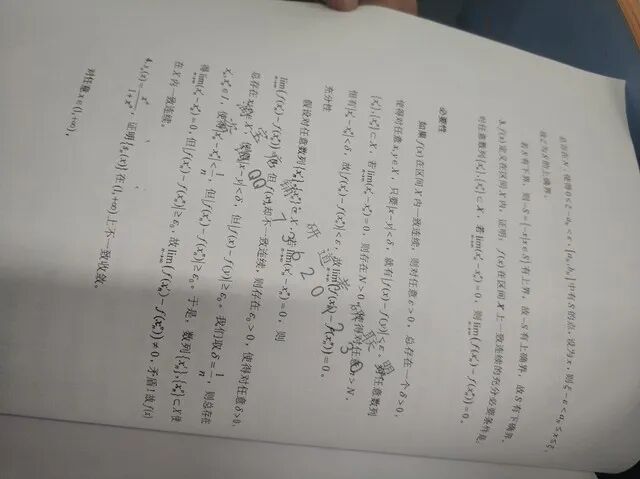 总存在 n, 使得 0 ≤ ξ - aₙ < ε. [aₙ, bₙ] 中有 S 的点, 设为 x, 则 ξ - ε < aₙ ≤ x ≤ ξ,
故 ξ 为 S 的上确界.
若 S 有下界, 则 -S = {-x|x ∈ S} 有上界, 故 -S 有上确界, 故 S 有下确界.
3. f(x) 定义在区间 X 内, 证明: f(x) 在区间 X 上一致连续的充分必要条件是,
对任意数列 {xₙ'}, {xₙ''} ⊂ X, 若 lim(xₙ' - xₙ'') = 0, 则 lim(f(xₙ') - f(xₙ'')) = 0.
n→∞ n→∞
必要性
如果 f(x) 在区间 X 内一致连续, 则对任意 ε > 0, 总存在一个 δ > 0,
使得对任意 x, y ∈ X, 只要 |x - y| < δ, 就有 |f(x) - f(y)| < ε, 对任意数列
{xₙ'}, {xₙ''} ⊂ X, 若 lim(xₙ' - xₙ'') = 0, 则存在 N > 0, 使得对任意 n > N,
n→∞
恒有 |xₙ' - xₙ''| < δ, 故 |f(xₙ') - f(xₙ'')| < ε, 故 lim(f(xₙ') - f(xₙ'')) = 0.
n→∞
充分性
假设对任意数列 {xₙ'}, {xₙ''} ⊂ X, 若 lim(xₙ' - xₙ'') = 0, 则
n→∞
lim(f(xₙ') - f(xₙ'')) = 0, 但 f(x) 却不一致连续, 则存在 ε₀ > 0, 使得对任意 δ > 0,
n→∞
总存在 x, y ∈ X, 使得 |x - y| < δ, 但 |f(x) - f(y)| ≥ ε₀. 我们取 δ = 1/n, 则总存在
xₙ', xₙ'' ∈ I, 使得 |xₙ' - xₙ''| < 1/n, 但 |f(xₙ') - f(xₙ'')| ≥ ε₀. 于是, 数列 {xₙ'}, {xₙ''} ⊂ X 使
得 lim(xₙ' - xₙ'') = 0, 但 |f(xₙ') - f(xₙ'')| ≥ ε₀, 故 lim(f(xₙ') - f(xₙ'')) ≠ 0, 矛盾! 故 f(x)
n→∞ n→∞
在 X 内一致连续.
4. sₙ(x) = xⁿ/(1 + xⁿ), 证明 {sₙ(x)} 在 (1, +∞) 上不一致收敛.
对任意 x ∈ (1, +∞),